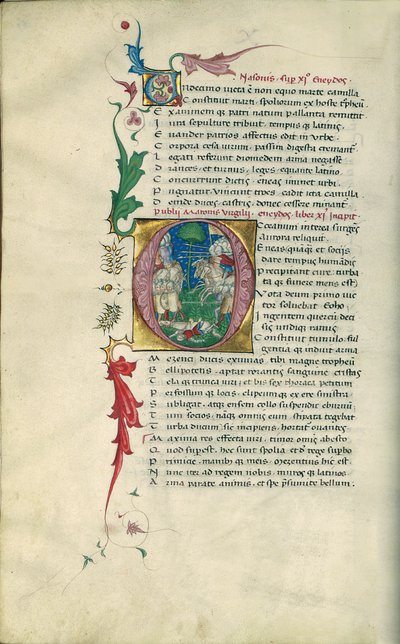 Nasonis. sup. xjº Eneydos.
Undecimo victa ē non equo marte camilla.
Constituit marti. spoliorum ex hoste tpheū.
Exanimem qz patri natum pallanta remittit.
Iura sepulture tribuit. tempus qz latinis.
Euander patrios affectus edit in urbe.
Corpora cesa virum. passim digesta cremantr̄.
Legati referunt diomedem arma negasse.
Drances. et turnus. leges. equante latino.
Concurrunt dictis. eneas iminet urbi.
Pugnatur. vincunt troes. cadit icta camilla.
Dein duces. castris. donec cessere
Publij Maronis Virgilij. eneydos. liber xjº. incipit.
Oceanum interea surgēs
aurora reliquit.
Eneas. quāqz et socijs
dare tempus humādis
Precipitant cure. turba
ta qz funere mens est.
Vota deum primo vic
tor solvebat Eoho.
Ingentem quercū deci
sis undiqz ramis
Constituit tumulo. ful
gentia qz induit arma
Mezenci ducis exuvias. tibi magne tropheū
Bellipotens. aptat rorantis sanguine cristas
Tela qz trunca viri. et bis sex thoraca petitum
Perfossum qz locis. clipeum qz ex ere sinistra
Subligat. atqz ensem collo suspendit eburnū.
Tum socios. nāqz omnis eum. stipata tegebat
Turba ducum. sic incipiens. hortatr̄ ovantes.
Maxima res effecta viri. timor omīs abesto
Quod supest. hec sunt spolia. et d' rege supbo
Primicie. manibꝫ qz meis. Mezentius hic est.
Nunc iter ad regem nobis. muros qz latinos
Arma parate animis. et spe psumite bellum.